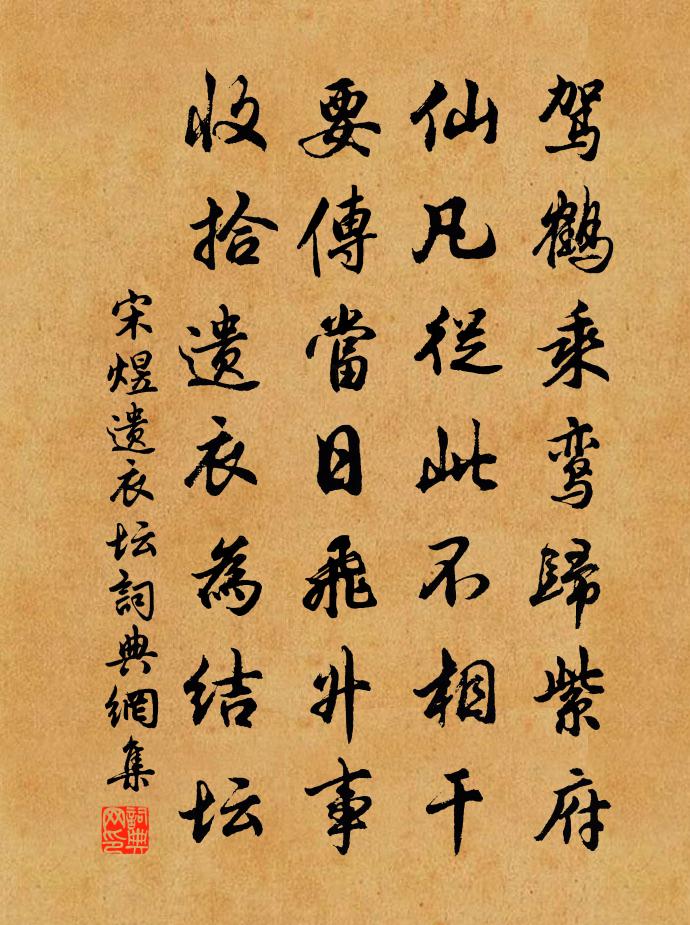 驾鶴乘鸾歸紫府
仙凡從此不相干
要傳當日飛升事
收拾遗衣為结坛
宋煜遗衣坛詞典網集
詞典网印